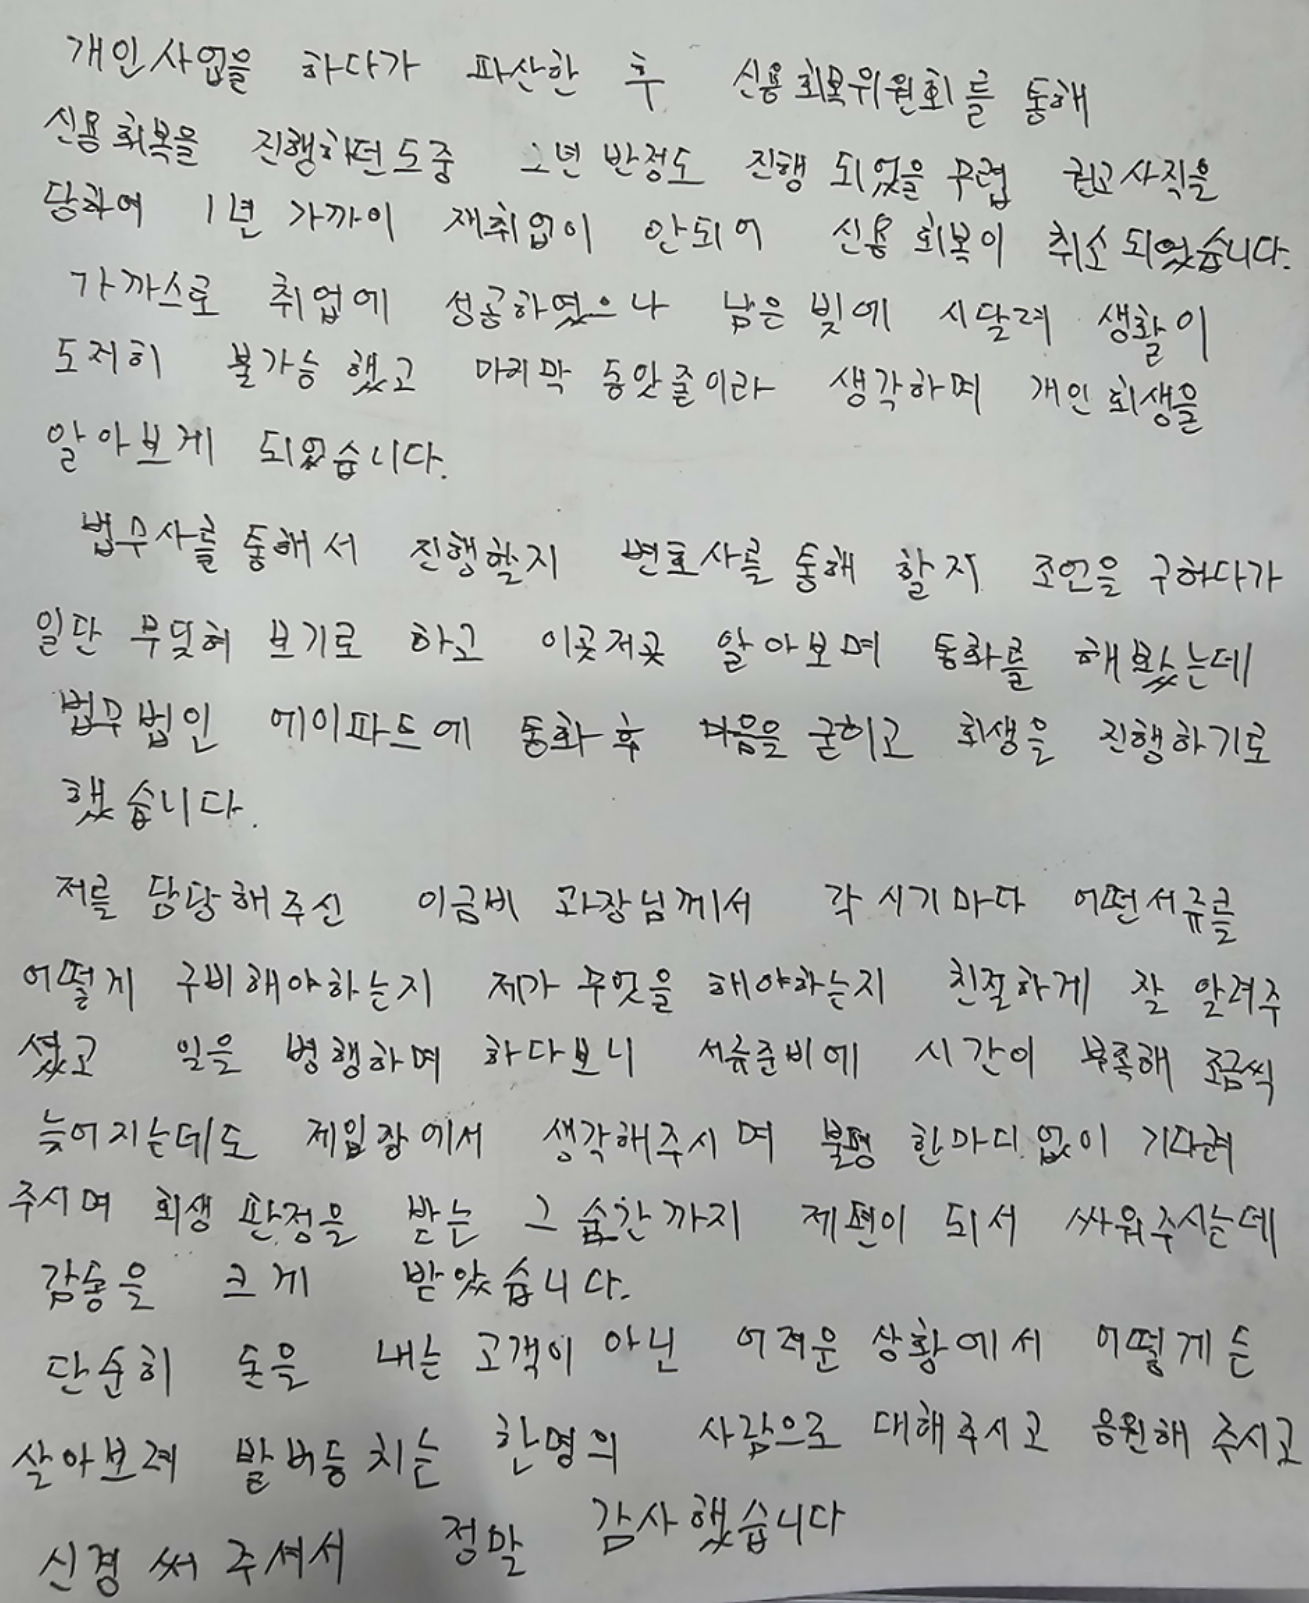 개인사업을 하다가 파산한 후 신용회복위원회를 통해
신용회복을 진행하던도중 2년 반정도 진행 되었을 무렵 권고사직을
당하여 1년 가까이 재취업이 안되어 신용회복이 취소되었습니다.
가까스로 취업에 성공하였으나 남은 빚에 시달려 생활이
도저히 불가능했고 마지막 동앗줄이라 생각하며 개인회생을
알아보게 되었습니다.
법무사를 통해서 진행할지 변호사를 통해 할지 조언을 구하다가
일단 부딪혀 보기로 하고 이곳저곳 알아보며 통화를 해봤는데
법무법인 에이파트에 통화 후 마음을 굳히고 회생을 진행하기로
했습니다.
저를 담당해주신 이금비 과장님께서 각 시기마다 어떤서류를
어떻게 구비해야하는지 제가 무엇을 해야하는지 친절하게 잘 알려주
셨고 일을 병행하며 하다보니 서류준비에 시간이 부족해 조금씩
늦어지는데도 제입장에서 생각해주시며 불평 한마디없이 기다려
주시며 회생 판정을 받는 그 순간까지 제편이 되서 싸워주시는데
감동을 크게 받았습니다.
단순히 돈을 내는 고객이 아닌 어려운 상황에서 어떻게든
살아보려 발버둥치는 한명의 사람으로 대해주시고 응원해 주시고
신경써주셔서 정말 감사했습니다